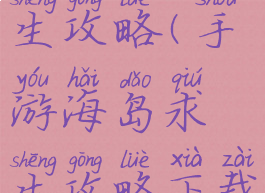 shēng gōng lüè shǒu
生攻略(手
yóu hǎi dǎo qiú
游海岛求
shēng gōng lüè xià zài
生攻略下载